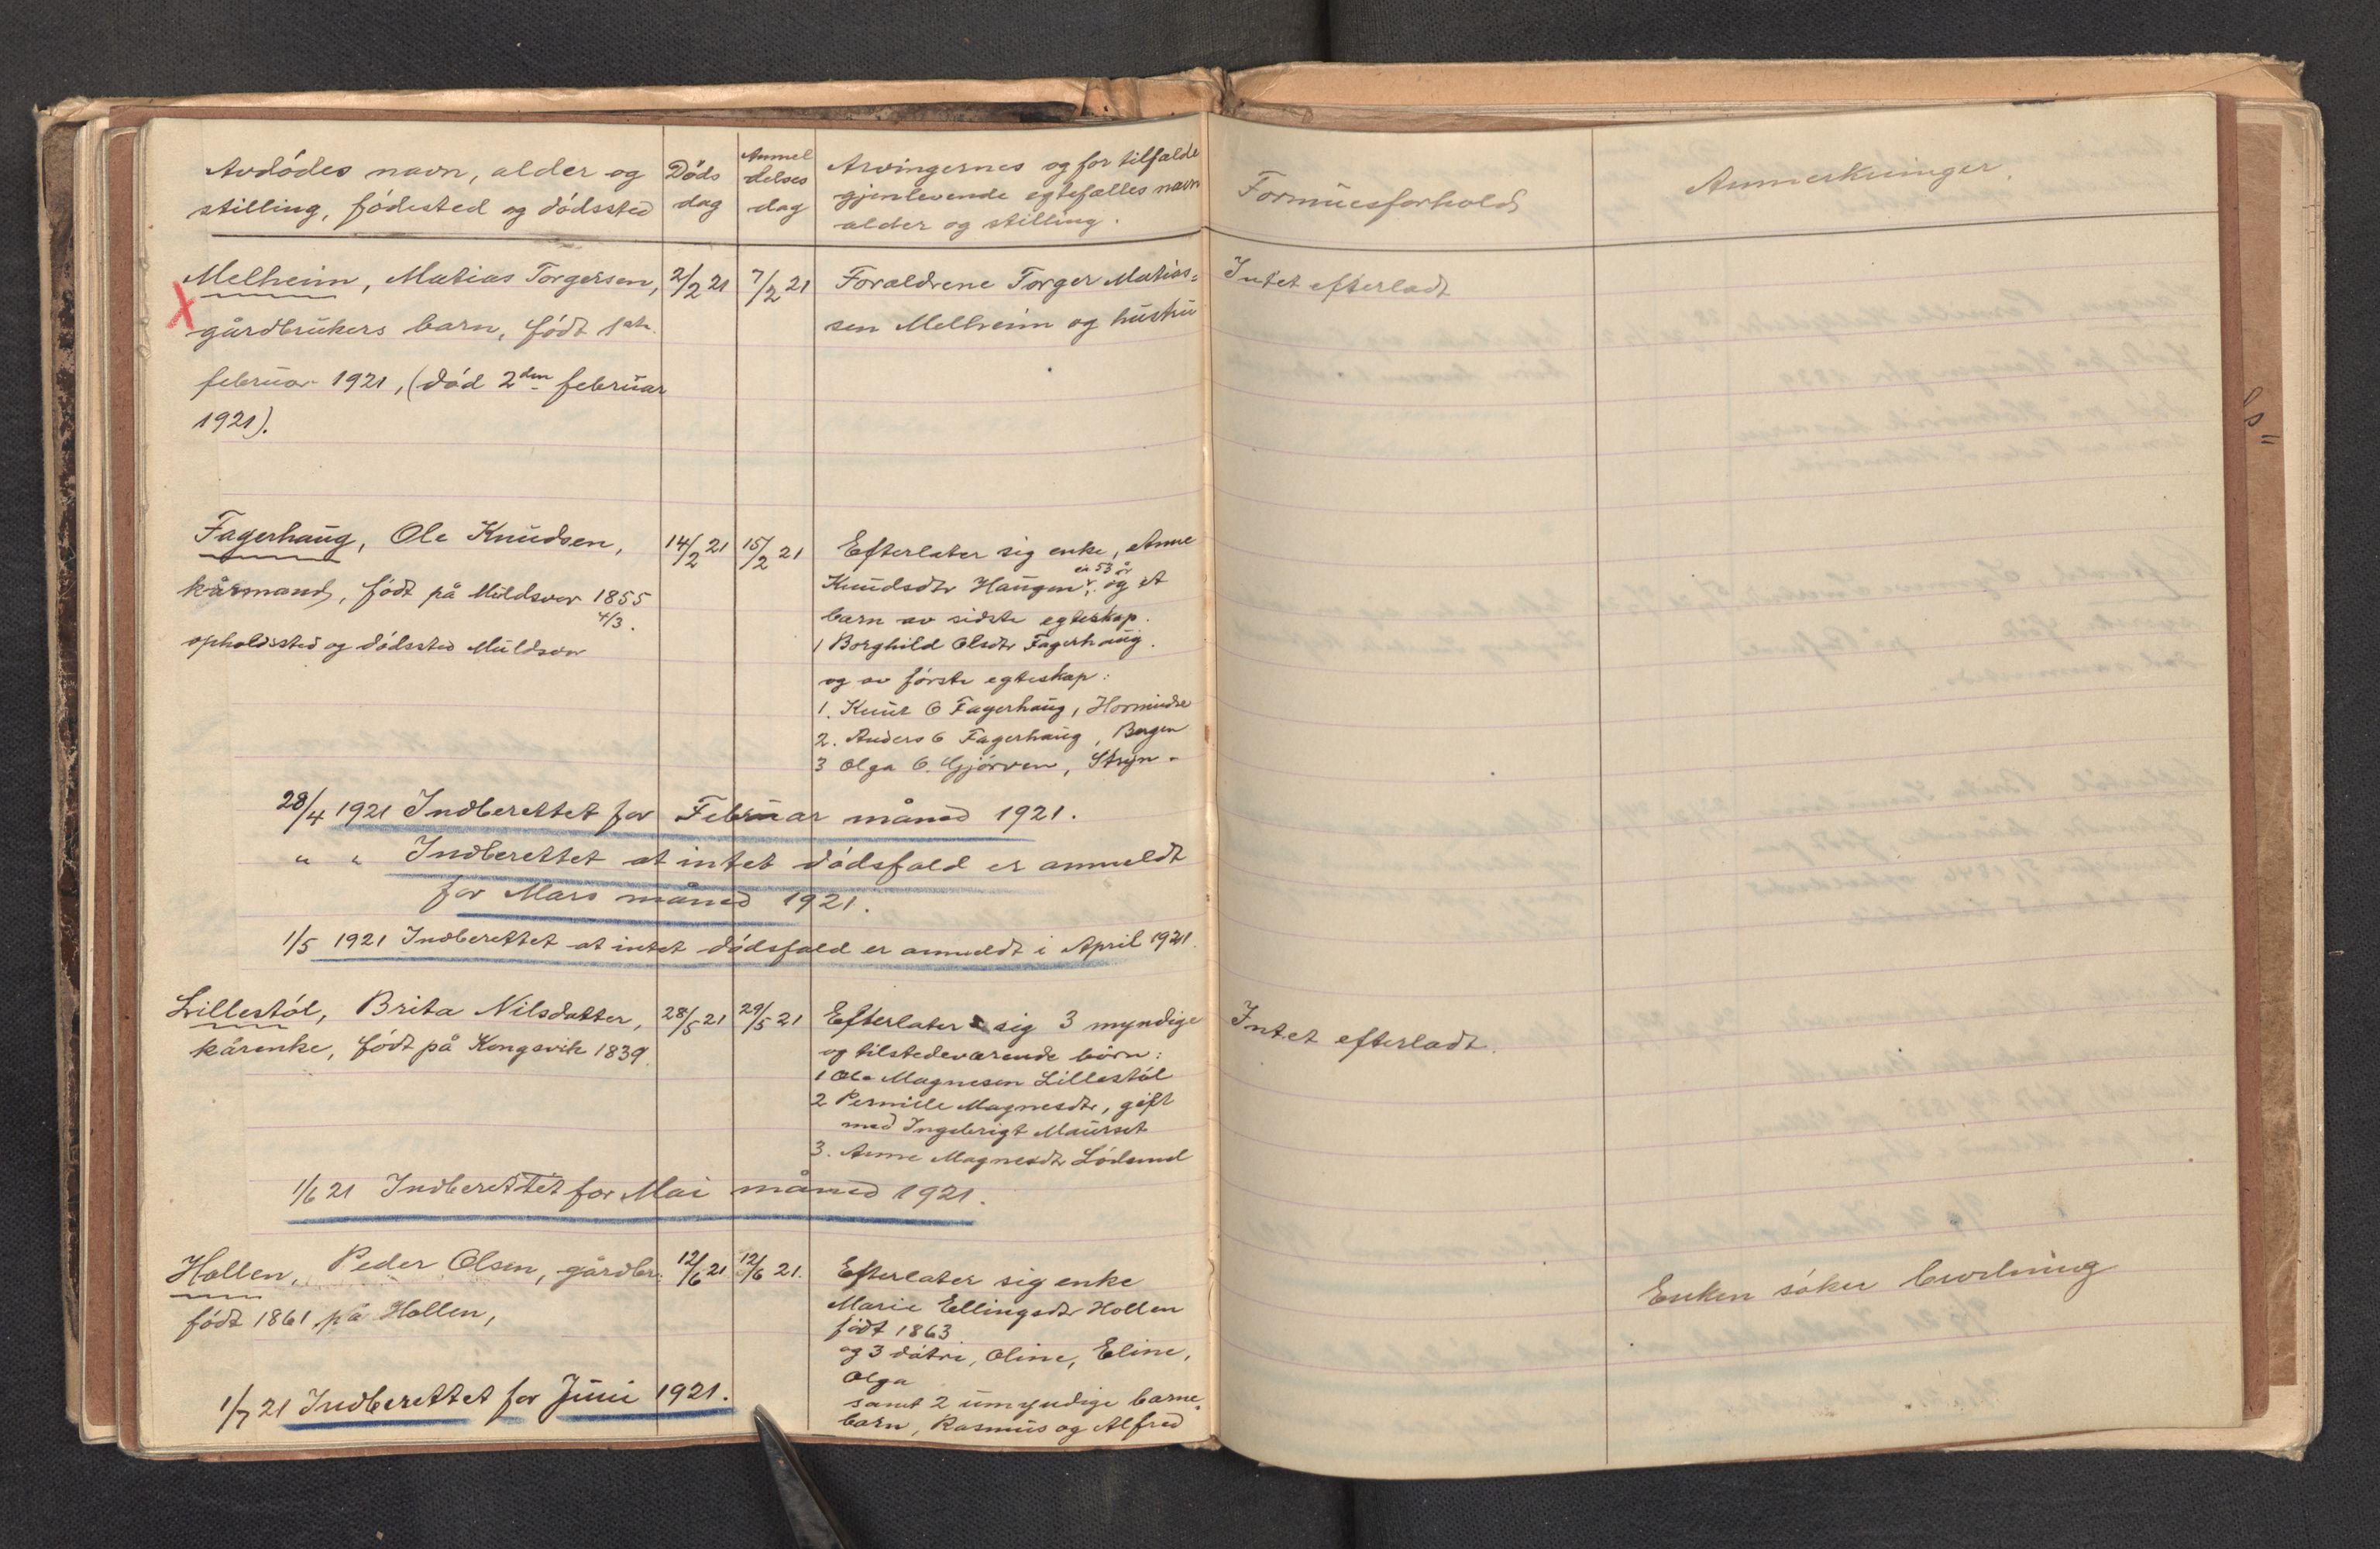 Avdödes navn, alder og
stilling, födested og dödssted
Döds
dag
Anmel
delses
dag
Arvingernes og for tilfælde
gjenlevende egtefælles navn
alder og stilling.
Formuesforhold
Anmerkninger.
Melheim, Matias Torgersen,
gårdbrukers barn, födt 1ste
februar 1921, (död 2den februar
1921).
2/2 21
7/2 21
Forældrene Torger Matias=
sen Melheim og hustru
Intet efterladt
Fagerhaug, Ole Knudsen,
kårmand, födt på Muldsvor 1855
4/3.
opholdssted og dödssted Muldsvor
14/2 21
15/2 21
Efterlater sig enke, Anne
Knudsdtr Haugen, ca 53 år og et
barn av sidste egteskap.
1 Borghild Olsdtr Fagerhaug.
og av förste egteskap:
1. Knut O Fagerhaug, Hornindal
2. Anders O Fagerhaug, Bergen
3 Olga O. Gjörven, Stryn -
28/4 1921 Indberettet for Februar måned 1921.
" " Indberettet at intet dödsfald er anmeldt
for Mars måned 1921.
1/5 1921 Indberettet at intet dödsfald er anmeldt i April 1921.
Lillestöl, Brita Nilsdatter,
kårenke, födt på Kongsvik 1839.
28/5 21
29/5 21
Efterlater sig 3 myndige
og tilstedeværende börn:
1 Ole Magnesen Lillestöl
2 Pernille Magnesdtr, gift
med Ingebrigt Maurset
3. Anne Magnesdtr Lödemel
Intet efterladt.
1/6 21 Indberettet for Mai måned 1921.
Hollen, Peder Olsen, gårdbr.
födt 1861 på Hollen,
12/6 21
12/6 21.
Efterlater sig enke
Marie Ellingsdtr Hollen
födt 1863
og 3 dötre, Oline, Eline,
Olga
samt 2 umyndige barne=
barn, Rasmus og Alfred
Enken söker bevilning
1/7 21 Indberettet for Juni 1921.